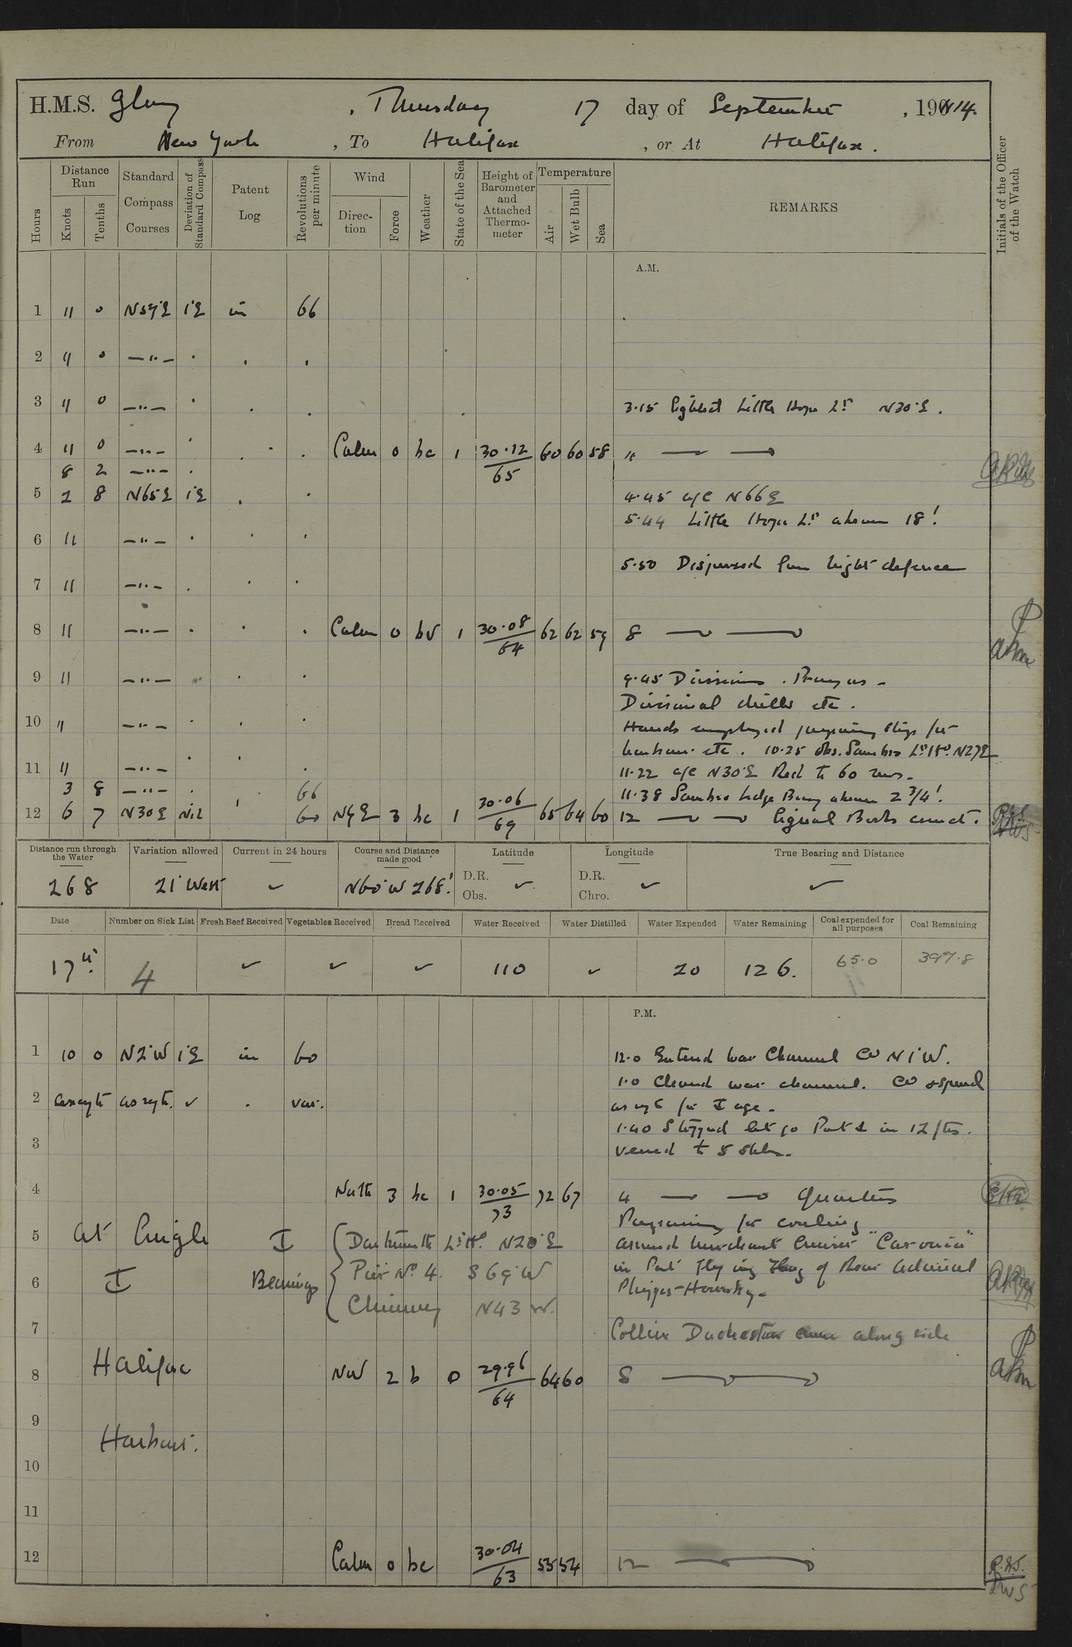 H.M.S. Glory , Thursday 17 day of September , 1914.
From New York , To Halifax , or At Halifax .
Hours
Distance Run
Knots
Tenths
Standard Compass Courses
Deviation of Standard Compass
Patent Log
Revolutions per minute
Wind
Direction
Force
Weather
State of the Sea
Height of Barometer and Attached Thermometer
Temperature
Air
Wet Bulb
Sea
REMARKS
Initials of the Officer of the Watch
A.M.
1 11 0 N59°E 1°E in 66
2 11 0 —"—
3 11 0 —"— 3.15 Sighted Little Hope Lt N30°E.
4 11 0 —"— Calm 0 bc 1 30.12/65 60 60 58 4
8 2 —"—
5 2 8 N65E 1°E 4.45 a/c N66E
5.44 Little Hope Lt abeam 18'
6 11 —"—
5.50 Dispersed from night defence
7 11 —"—
8 11 —"— Calm 0 bv 1 30.08/64 62 62 59 8
9 11 —"— 9.45 Divisions. Prayers.
Divisional drills etc.
10 11 —"— Hands employed preparing ship for
harbour etc. 10.25 obs. Sambro Lt Ho N27E
11 11 —"— 11.22 a/c N30°E Red to 60 revs.
3 8 —"— 66 11.38 Sambro Ledge Buoy abeam 2 3/4'.
12 6 7 N30E Nil 60 N9E 3 bc 1 30.06/69 65 64 60 12 Signal Books correct.
Distance run through the Water 268
Variation allowed 21° West
Current in 24 hours ✓
Course and Distance made good N60°W 268'
Latitude D.R. Obs. ✓
Longitude D.R. Chro. ✓
True Bearing and Distance ✓
Date Number on Sick List Fresh Beef Received Vegetables Received Bread Received Water Received Water Distilled Water Expended Water Remaining Coal expended for all purposes Coal Remaining
17th. 4 ✓ ✓ ✓ 110 ✓ 20 126. 65.0 397.8
P.M.
1 10 0 N2°W 1°E in 60 12.0 Entered War Channel Co N1°W.
1.0 Cleared war channel. Co & speed
2 as reqte as reqte. ✓ var. as reqte for I age.
1.40 Stopped let go Port I in 12 fms.
3 veered to 5 shks.
4 North 3 bc 1 30.05/73 72 67 4 Quarters
Preparing for coaling
5 At Single I { Dartmouth Lt Ho N20°E
Armed Merchant Cruiser "Caronia"
6 I Bearings Pier No. 4. S69°W
in Port flying Flag of Rear Admiral
Chimney N43W.
Phipps-Hornby.
7 Collier came alongside
8 Halifax NW 2 b 0 29.96/64 64 60 8
9 Harbour.
10
11
12 Calm 0 bc 30.04/63 55 54 12